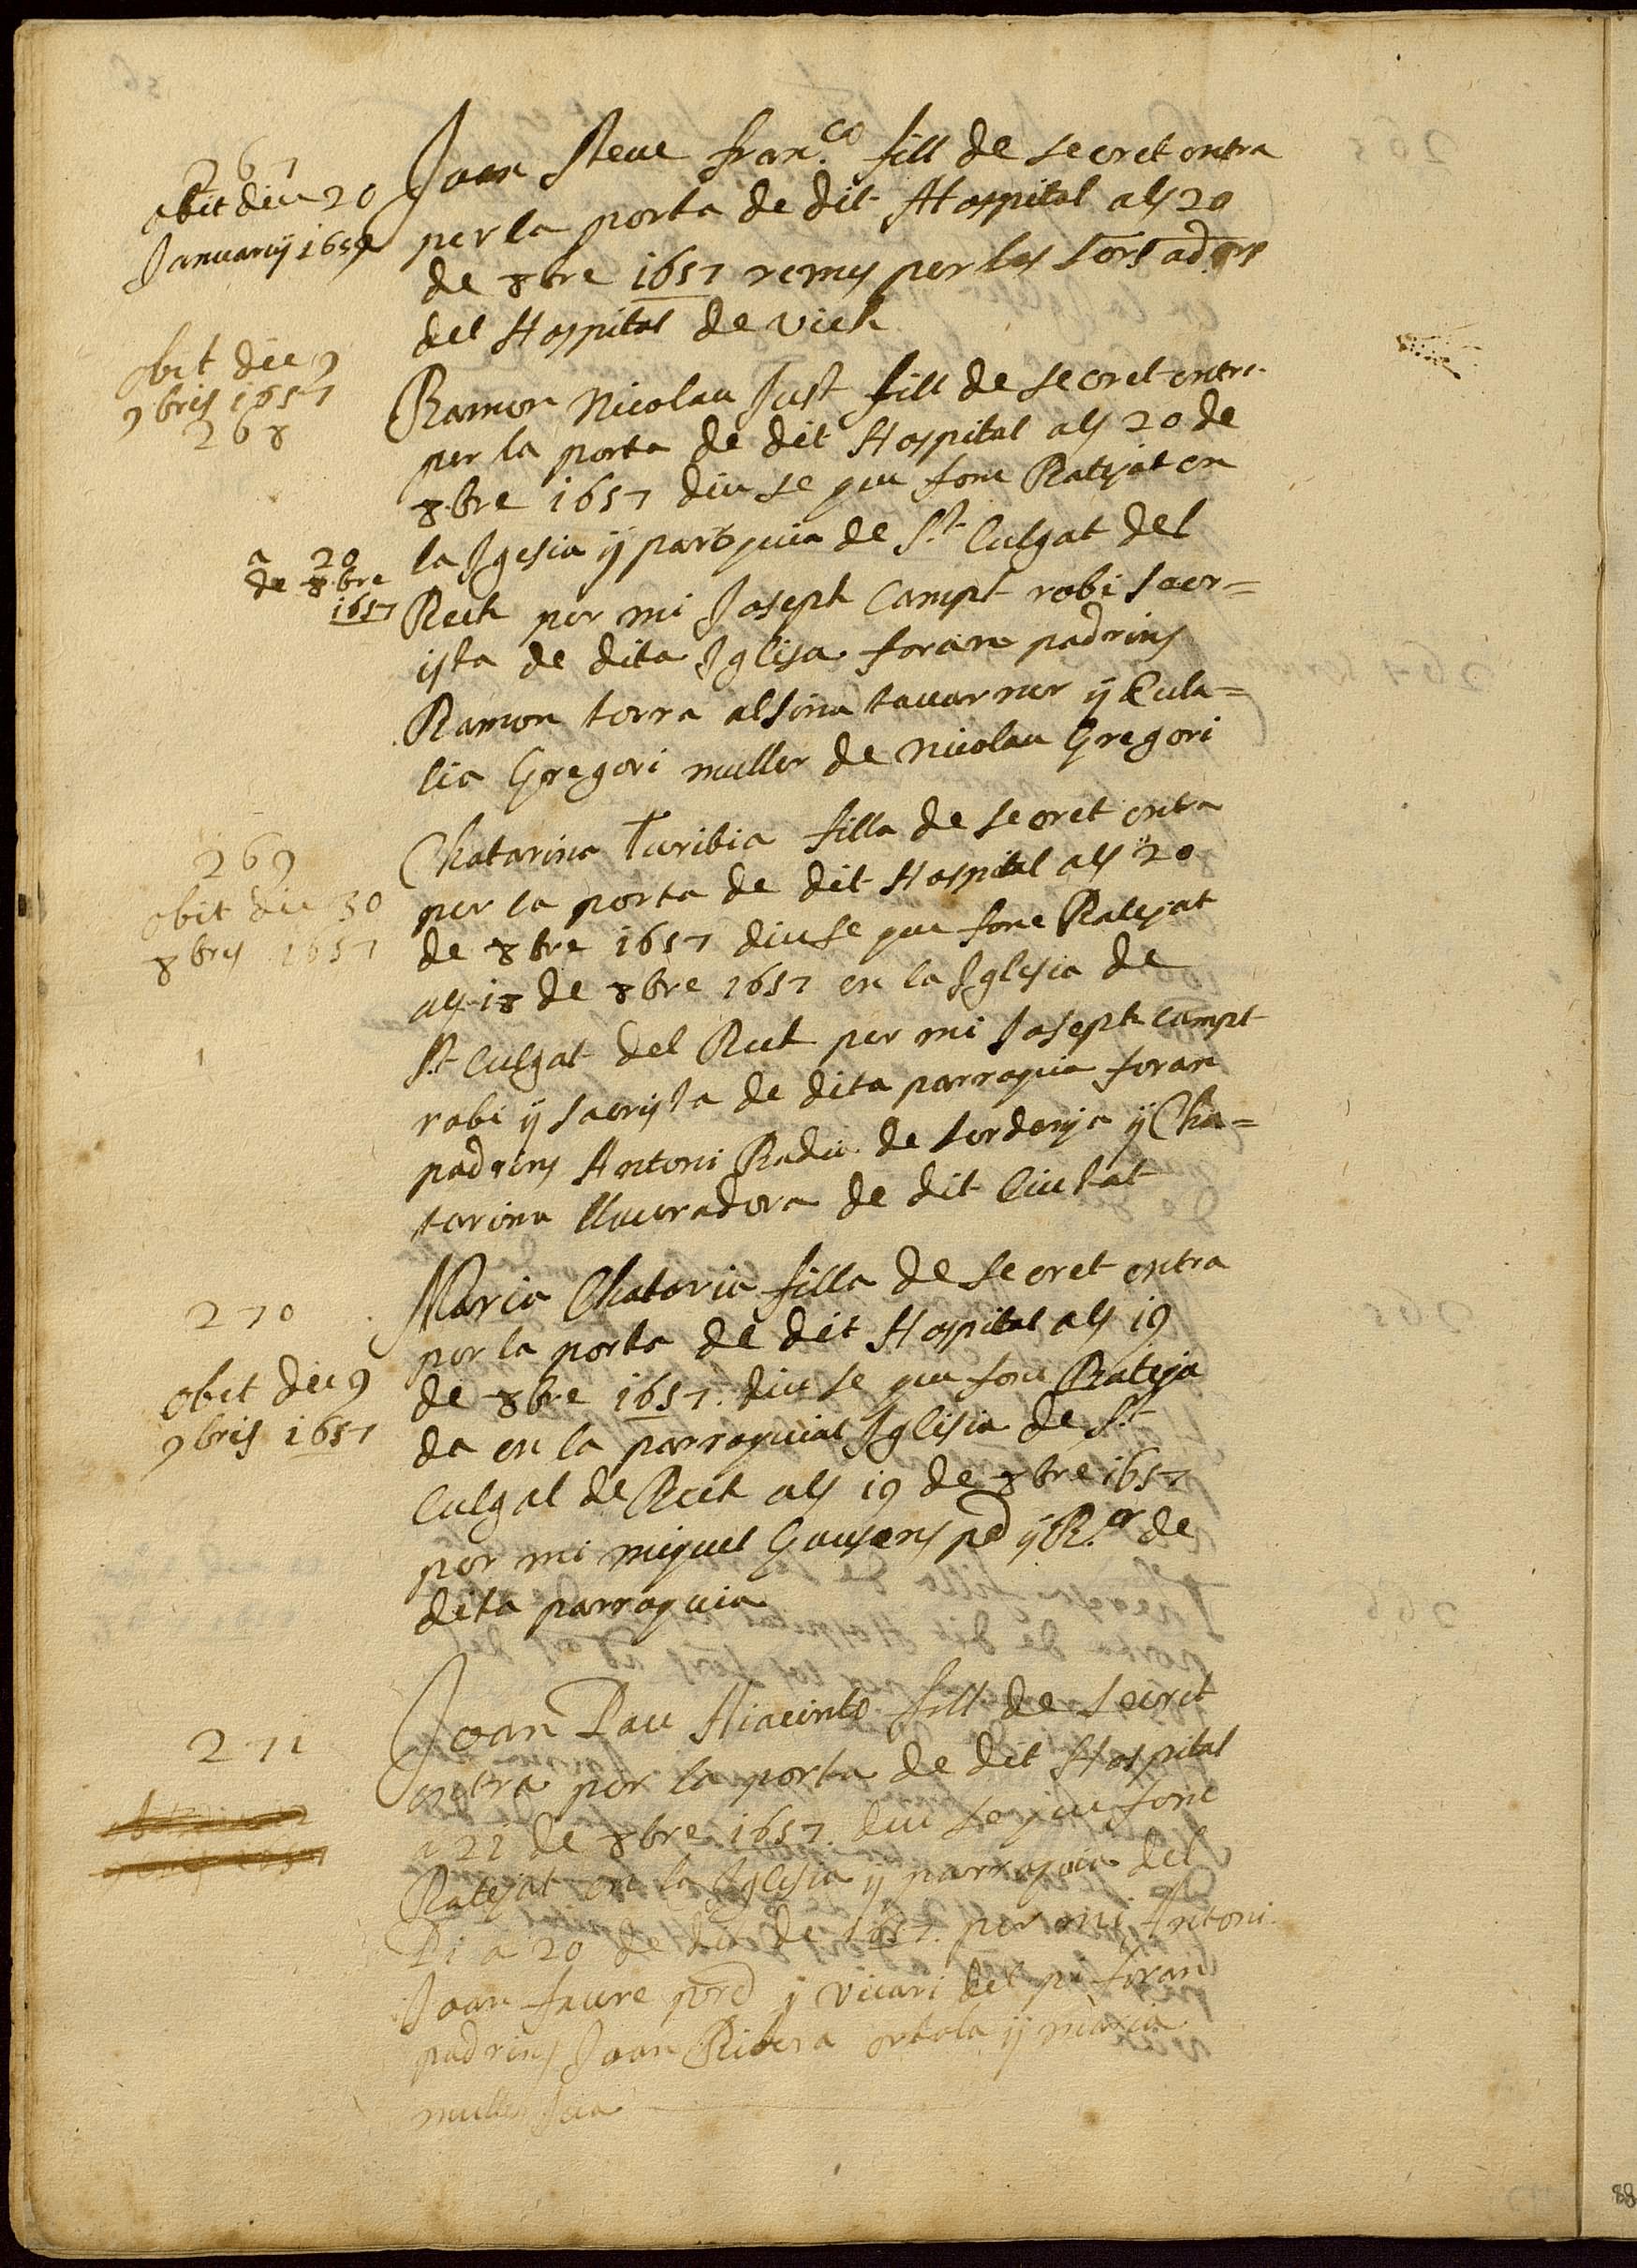 267
obit die 20
Januarij 1659
Joan steue fran.co fill de secret entra
per la porta de dit Hospital als 20
de 8bre 1657 remes per los
del Hospital de vich
obit die 9
9bris 1657
268
a 20
de 8bre
1657
Ramon Nicolau Just fill de secret entra
per la porta de dit Hospital als 20 de
8bre 1657 diu se que fonc Batejat en
la Igesia ÿ paroquia de St. Culgat del
Rech per mi Joseph Campt robi sacr=
ista de dita Iglisa foran padrins
Ramon torra alsina tauarner ÿ Eula=
lia Gregori muller de Nicolau Gregori
269
obit die 30
8bris 1657
Chatarina Turibia filla de secret entra
per la porta de dit Hospital als 20
de 8bre 1657 diu se que fonc Batejat
als 18 de 8bre 1657 en la Iglesia de
St. Culgat del Rech per mi Joseph Campt
robi ÿ sacrista de dita parroquia foran
padrins Antoni Radu de serdenya ÿ Cha=
tarina llauradora de dit Ciutat
270
obit die 9
9bris 1657
Maria Chataria filla de secret entra
per la porta de dit Hospital als 19
de 8bre 1657. diu se que fonc Bateja
da en la parroquial Iglisia de St.
Culgat de Rech als 19 de 8bre 1657
per mi miquel Gausens ÿ R.or de
dita parroquia
271
Joan Pau Hiacinto fill de secret
entra per la porta de dit Hospital
a 21 de 8bre 1657. diu se que fonc
Batejat en la Iglesia ÿ parroquia del
Pi a 20 de dit de 1657. per mi Antoni
Joan faure ÿ vicari del pi foran
padrins Joan Ribera ortola ÿ maria
muller sua